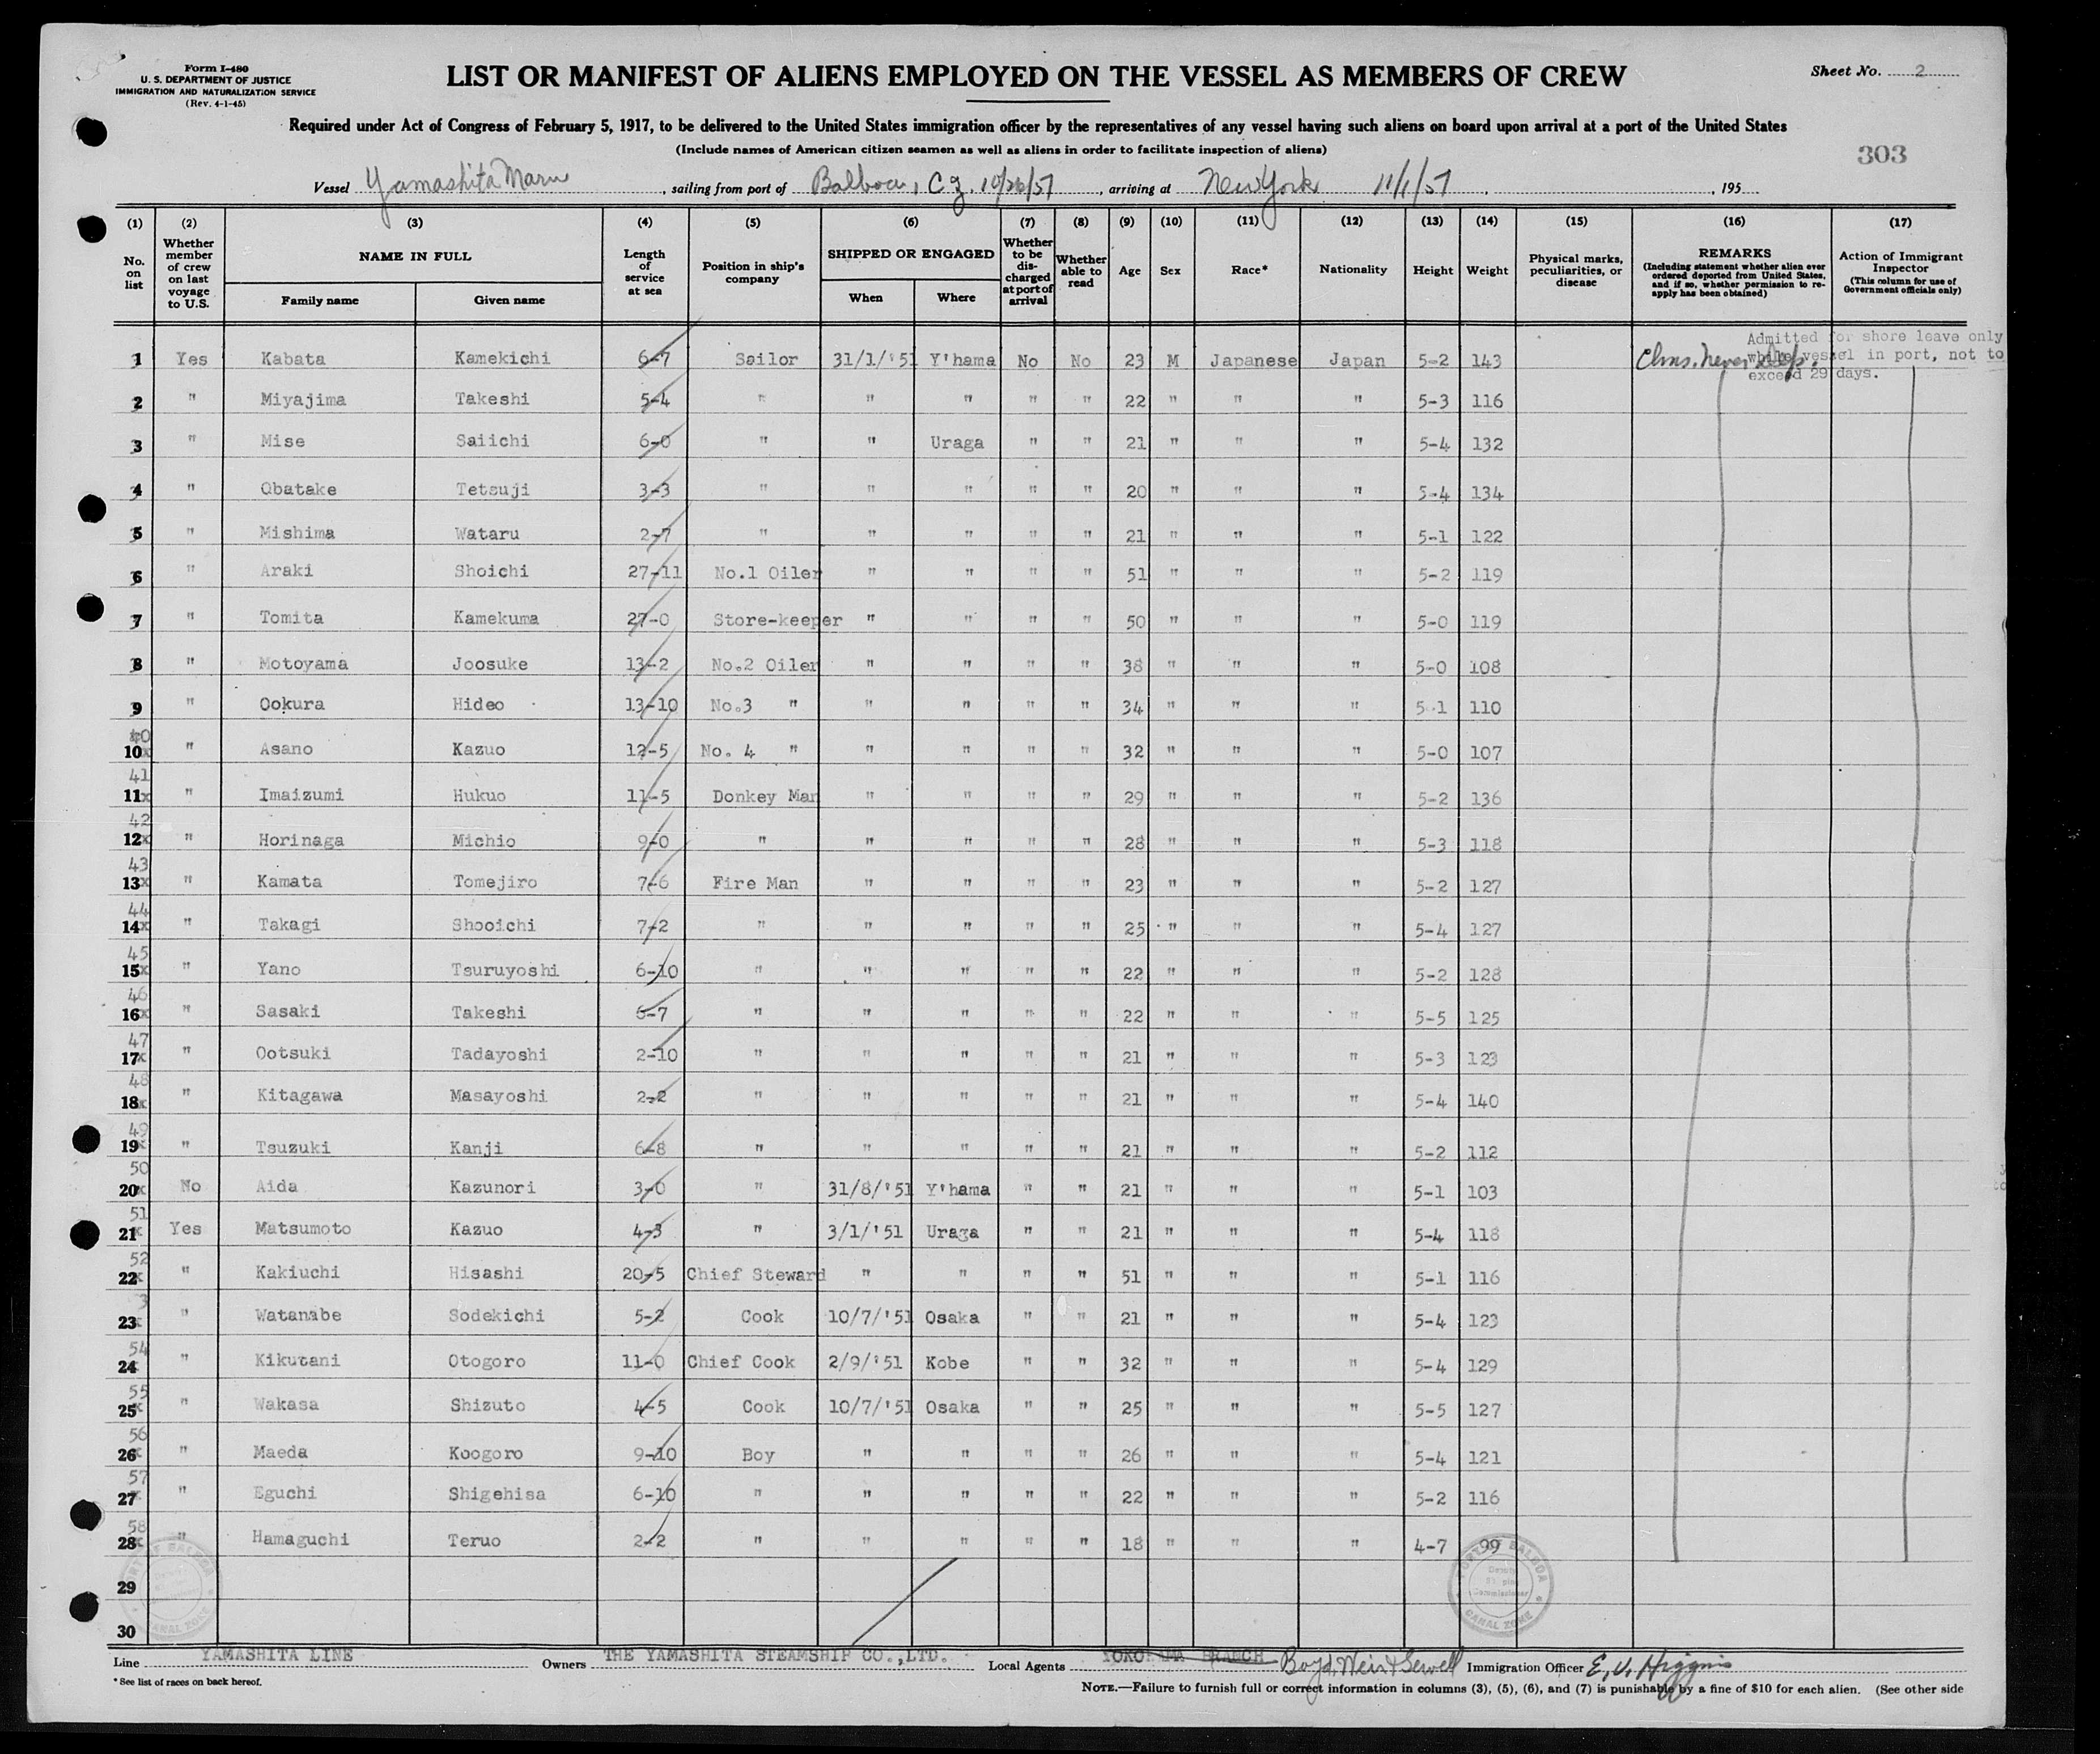 Form I-480
U. S. DEPARTMENT OF JUSTICE
IMMIGRATION AND NATURALIZATION SERVICE
(Rev. 4-1-45)
LIST OR MANIFEST OF ALIENS EMPLOYED ON THE VESSEL AS MEMBERS OF CREW
Sheet No. 2
Required under Act of Congress of February 5, 1917, to be delivered to the United States immigration officer by the representatives of any vessel having such aliens on board upon arrival at a port of the United States
(Include names of American citizen seamen as well as aliens in order to facilitate inspection of aliens)
303
Vessel Yamashita Maru, sailing from port of Balboa, C.Z. 10/26/51, arriving at New York 11/1/51, 195
(1) (2) (3) (4) (5) (6) (7) (8) (9) (10) (11) (12) (13) (14) (15) (16) (17)
No. on list
Whether member of crew on last voyage to U.S.
NAME IN FULL
Family name
Given name
Length of service at sea
Position in ship's company
SHIPPED OR ENGAGED
When
Where
Whether to be discharged at port of arrival
Whether able to read
Age
Sex
Race*
Nationality
Height
Weight
Physical marks, peculiarities, or disease
REMARKS
(Including statement whether alien ever ordered deported from United States, and if so, whether permission to reapply has been obtained)
Action of Immigrant Inspector
(This column for use of Government officials only)
Admitted for shore leave only
while vessel in port, not to
exceed 29 days.
1 Yes Kabata Kamekichi 6-7 Sailor 31/1/'51 Y'hama No No 23 M Japanese Japan 5-2 143 Clms. never dep.
2 " Miyajima Takeshi 5-4 " " " " " 22 " " " 5-3 116
3 " Mise Saiichi 6-0 " " Uraga " " 21 " " " 5-4 132
4 " Obatake Tetsuji 3-3 " " " " " 20 " " " 5-4 134
5 " Mishima Wataru 2-7 " " " " " 21 " " " 5-1 122
6 " Araki Shoichi 27-11 No.1 Oiler " " " " 51 " " " 5-2 119
7 " Tomita Kamekuma 27-0 Store-keeper " " " " 50 " " " 5-0 119
8 " Motoyama Joosuke 13-2 No.2 Oiler " " " " 38 " " " 5-0 108
9 " Ookura Hideo 13-10 No.3 " " " " " 34 " " " 5-1 110
40
10 " Asano Kazuo 12-5 No. 4 " " " " " 32 " " " 5-0 107
41
11 " Imaizumi Hukuo 11-5 Donkey Man " " " " 29 " " " 5-2 136
42
12 " Horinaga Michio 9-0 " " " " " 28 " " " 5-3 118
43
13 " Kamata Tomejiro 7-6 Fire Man " " " " 23 " " " 5-2 127
44
14 " Takagi Shooichi 7-2 " " " " " 25 " " " 5-4 127
45
15 " Yano Tsuruyoshi 6-10 " " " " " 22 " " " 5-2 128
46
16 " Sasaki Takeshi 6-7 " " " " " 22 " " " 5-5 125
47
17 " Ootsuki Tadayoshi 2-10 " " " " " 21 " " " 5-3 123
48
18 " Kitagawa Masayoshi 2-2 " " " " " 21 " " " 5-4 140
49
19 " Tsuzuki Kanji 6-8 " " " " " 21 " " " 5-2 112
50
20 No Aida Kazunori 3-0 " 31/8/'51 Y'hama " " 21 " " " 5-1 103
51
21 Yes Matsumoto Kazuo 4-3 " 3/1/'51 Uraga " " 21 " " " 5-4 118
52
22 " Kakiuchi Hisashi 20-5 Chief Steward " " " " 51 " " " 5-1 116
3
23 " Watanabe Sodekichi 5-2 Cook 10/7/'51 Osaka " " 21 " " " 5-4 123
54
24 " Kikutani Otogoro 11-0 Chief Cook 2/9/'51 Kobe " " 32 " " " 5-4 129
55
25 " Wakasa Shizuto 4-5 Cook 10/7/'51 Osaka " " 25 " " " 5-5 127
56
26 " Maeda Koogoro 9-10 Boy " " " " 26 " " " 5-4 121
57
27 " Eguchi Shigehisa 6-10 " " " " " 22 " " " 5-2 116
58
28 " Hamaguchi Teruo 2-2 " " " " " 18 " " " 4-7 99
29
30
PORT OF BALBOA
CANAL ZONE
Line YAMASHITA LINE Owners THE YAMASHITA STEAMSHIP CO.,LTD. Local Agents YOKOHAMA BRANCH Boyd, Weir & Sewell Immigration Officer E. V. Higgins
* See list of races on back hereof.
NOTE.—Failure to furnish full or correct information in columns (3), (5), (6), and (7) is punishable by a fine of $10 for each alien. (See other side